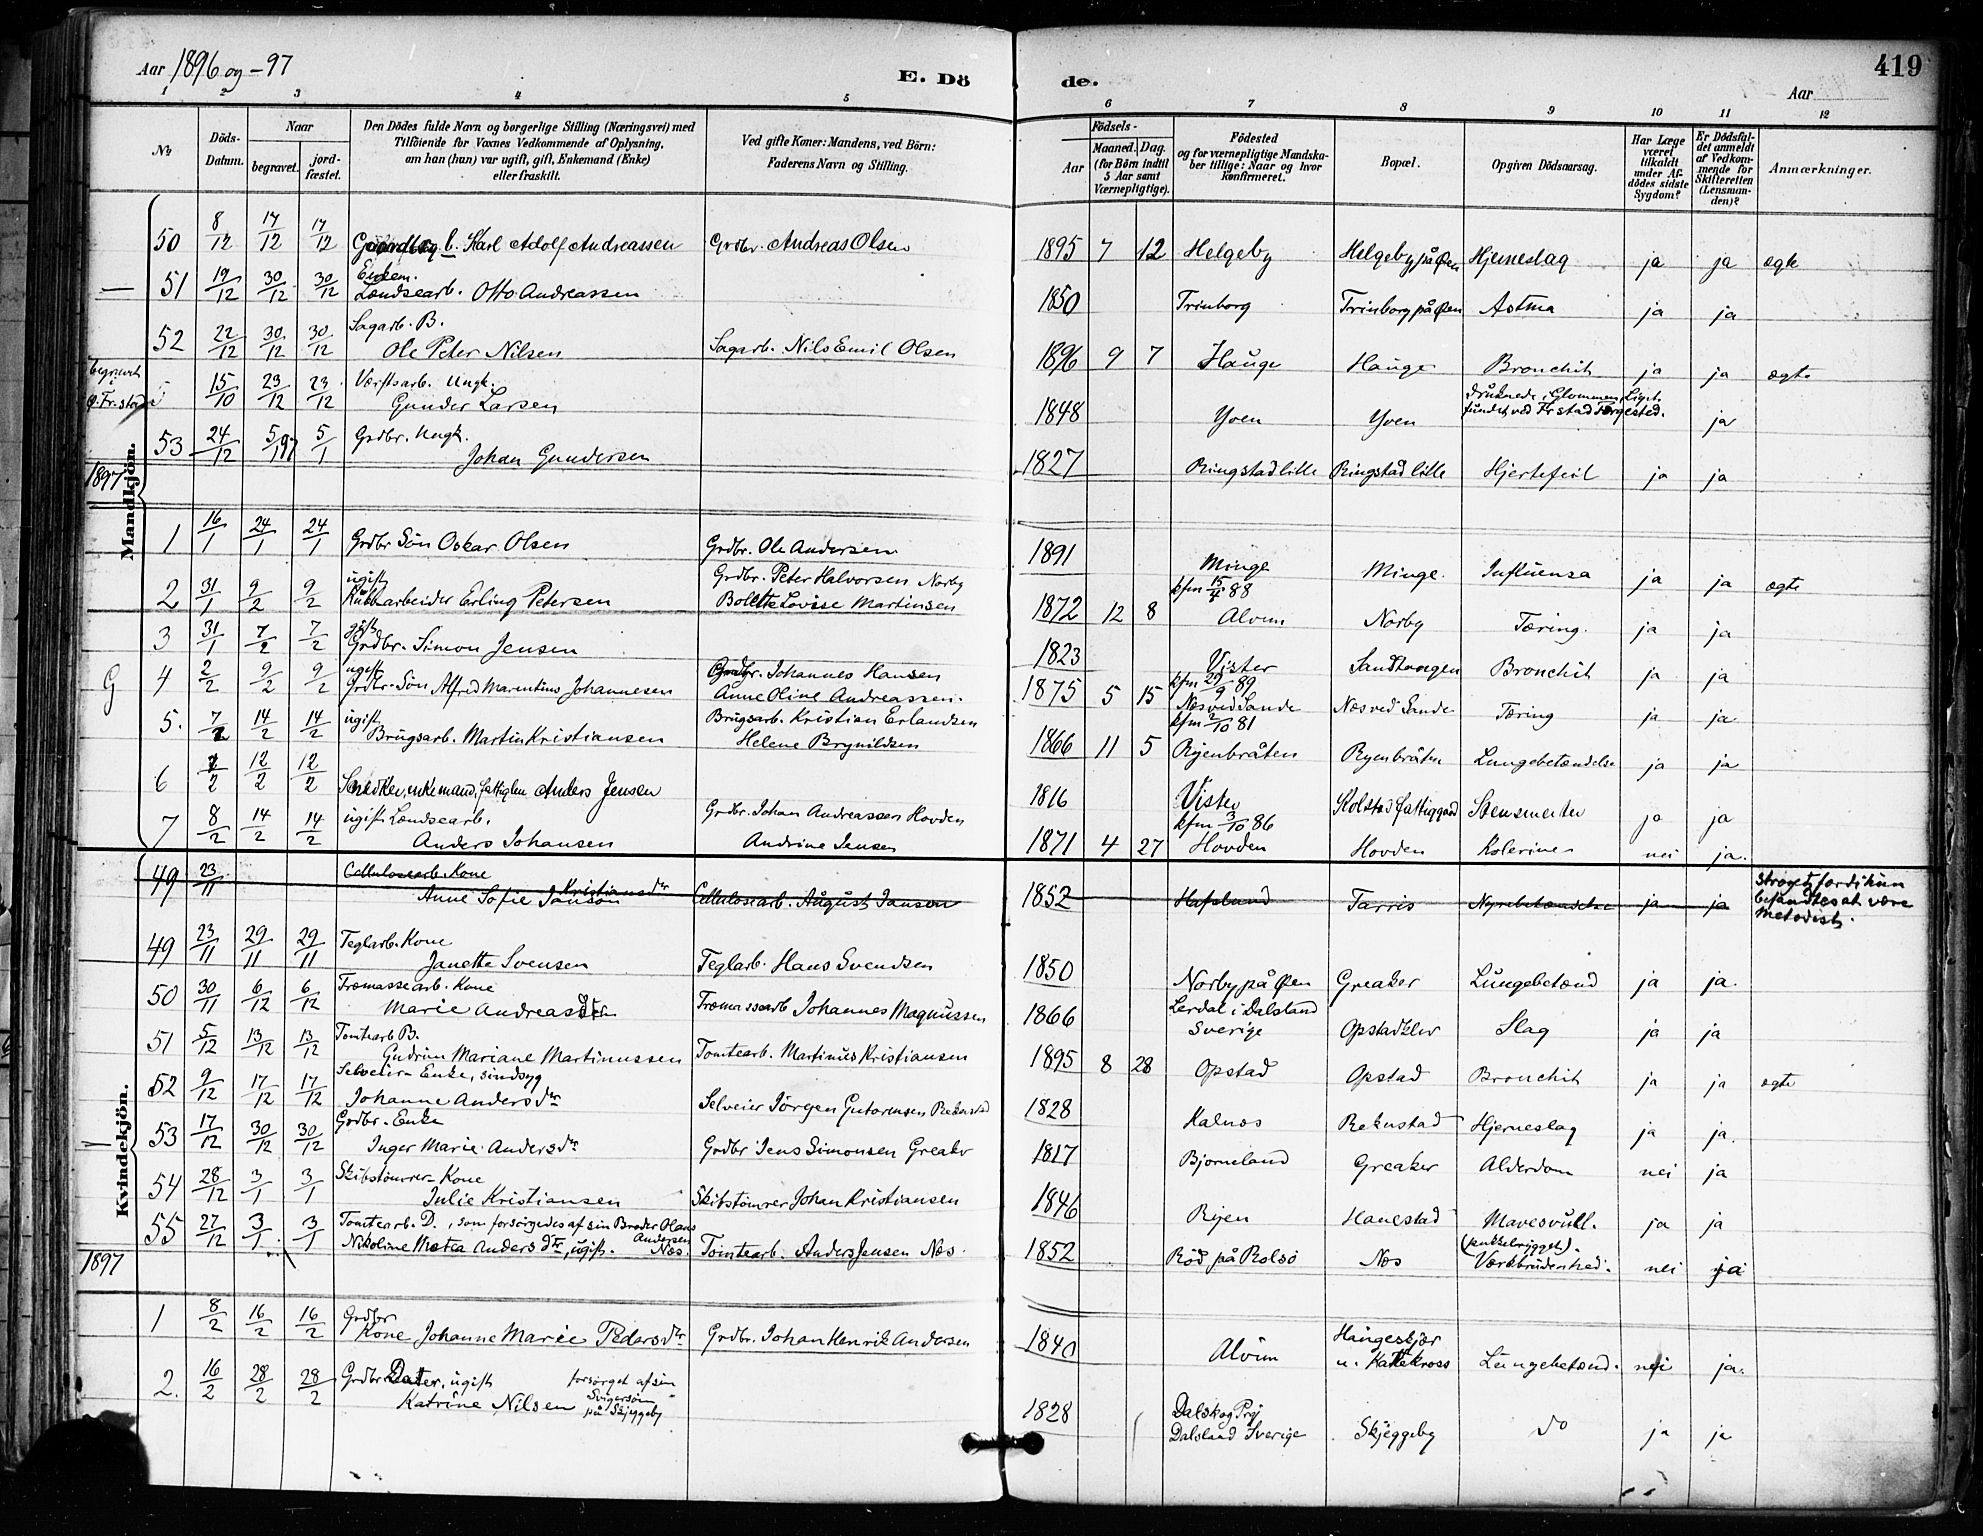 Aar 1896 og -97
E. Dö
de.
419
Aar
1 2 3 4 5 6 7 8 9 10 11 12
№
Döds-Datum.
Naar
begravet.
jord-fæstet.
Den Dödes fulde Navn og borgerlige Stilling (Næringsvei) med
Tilföiende for Voxnes Vedkommende af Oplysning,
om han (hun) var ugift, gift, Enkemand (Enke)
eller fraskilt.
Ved gifte Koner: Mandens, ved Börn:
Faderens Navn og Stilling.
Födsels-
Aar
Maaned. Dag.
(for Börn indtil
5 Aar samt
Værnepligtige).
Födested
og for værnepligtige Mandska-
ber tillige: Naar og hvor
Konfirmeret.
Bopæl.
Opgiven Dödsaarsag.
Har Læge
været
tilkaldt
under Af-
dödes sidste
Sygdom?
Er Dödsfal-
det anmeldt
af Vedkom-
mende for
Skifteretten
(Lensman-
den)?
Anmærkninger.
Mandkjön.
50 8/12 17/12 17/12 b. Karl Adolf Andreassen Grdbr. Andreas Olsen 1895 7 12 Helgeby Helgeby på Øen Hjerneslag ja ja ægte
51 19/12 30/12 30/12 Enkem.
Lændsearb. Otto Andreassen 1850 Trinborg Trinborg på Øen Astma ja ja
52 22/12 30/12 30/12 Sagarb. B.
Ole Peter Nilsen Sagarb. Nils Emil Olsen 1896 9 7 Hauge Hauge Bronchit ja ja ægte
begravet i
Ø. Fr.stad 15/10 23/12 23/12 Værftsarb. Ungk.
Gunder Larsen 1848 Yven Yven druknede i Glommen, Liget
fundet ved Fr stad Færgested. ja
53 24/12 5/1 97 5/1 Grdbr. Ungk.
Johan Gundersen 1827 Ringstad lille Ringstad lille Hjertefeil ja ja
1897
1 16/1 24/1 24/1 Grdbr Sön Oskar Olsen Grdbr. Ole Andersen 1891 Minge Minge. Influensa ja ja ægte
2 31/1 9/2 9/2 ugift
Erling Petersen Grdbr. Peter Halvorsen Norby
Bolette Lovise Martinsen 1872 12 8 kfm 15/4 88
Alvim Norby Tæring. ja ja
3 31/1 7/2 7/2 gift
Grdbr. Simon Jensen 1823 Vister Sandtangen Bronchit ja ja
G 4 2/2 9/2 9/2 ugift
Grdbr. Sön Alfred Marentius Johannesen Grdbr. Johannes Hansen
Anne Oline Andreassen. 1875 5 15 kfm 29/9 89
Næs ved Sande Næs ved Sande Tæring ja ja
5. 7/2 14/2 14/2 ugift
Brugsarb. Martin Kristiansen Brugsarb. Kristian Erlandsen
Helene Brynildsen 1866 11 5 kfm 2/10 81
Ryenbråten Ryenbråten Lungebetændelse ja ja
6 2/2 12/2 12/2 Snedker, enkemand, fattiglem Anders Jensen 1816 Vister Kolstad Fattiggaard Stensmerter ja ja
7 8/2 14/2 14/2 ugift Lændsearb.
Anders Johansen Grdbr. Johan Andreassen Hovden
Andrine Jensen 1871 4 27 kfm 3/10 86
Hovden Hovden Kolerine nei ja.
Kvindekjön.
49 23/11 Cellulosearb. Kone
Anne Sofie Janson Kristiansdtr Cellulosearb. August Janson 1852 Hafslund Tarris Nyrebetændelse ja ja ströget, fordi hun
befandtes at være
Metodist.
49 23/11 29/11 29/11 Teglarb. Kone
Janette Svensen Teglarb. Hans Svendsen 1850 Norby på Øen Greaker Lungebetænd ja ja.
50 30/11 6/12 6/12 Træmassearb. Kone
Marie Andreasdtr Træmassearb Johannes Magnussen 1866 Lerdal i Dalsland
Sverige Opstadklev Slag ja ja
51 5/12 13/12 13/12 Tomtearb B.
Gudrun Mariane Martinussen Tomtearb. Martinus Kristiansen 1895 8 28 Opstad Opstad Bronchit ja ja ægte
52 9/12 17/12 17/12 Selveier Enke, sindsyg
Johanne Andersdtr Selveier Jörgen Gutormsen Rekustad 1828 Kalnes Rekustad Hjerneslag ja ja.
53 17/12 30/12 30/12 Grdbr. Enke
Inger Marie Andersdtr Grdbr Jens Simonsen Greaker 1817 Bjorneland Greaker Alderdom nei ja
54 28/12 3/1 3/1 Skibstömrer Kone
Julie Kristiansen Skibstömrer Johan Kristiansen 1846 Ryen Hanestad Mavesvull. ja ja
55 27/12 3/1 3/1 Tomtearb. D., som forsörgedes af sin Broder Hans
Andersen
Nikoline Matea Andersdtr, ugift. Næs. Tomtearb. Anders Jensen Næs. 1852 Röd på Rolsö Næs (pukkelrygget).
Værkbrudenhed. nei ja
1897
1 8/2 16/2 16/2 Grdbr
Kone Johanne Marie Pedersdtr Grdbr. Johan Henrik Andersen 1840 Alvim Haugeskjær
u. Kallekross Lungebetænd. nei ja.
2. 16/2 28/2 28/2 Grdbr Datter, ugift forsörget af sin
Katrine Nilsen Svigersön
på Skjeggeby 1828 Dalskog Prgj
Dalsland Sverige Skjeggeby do ja ja